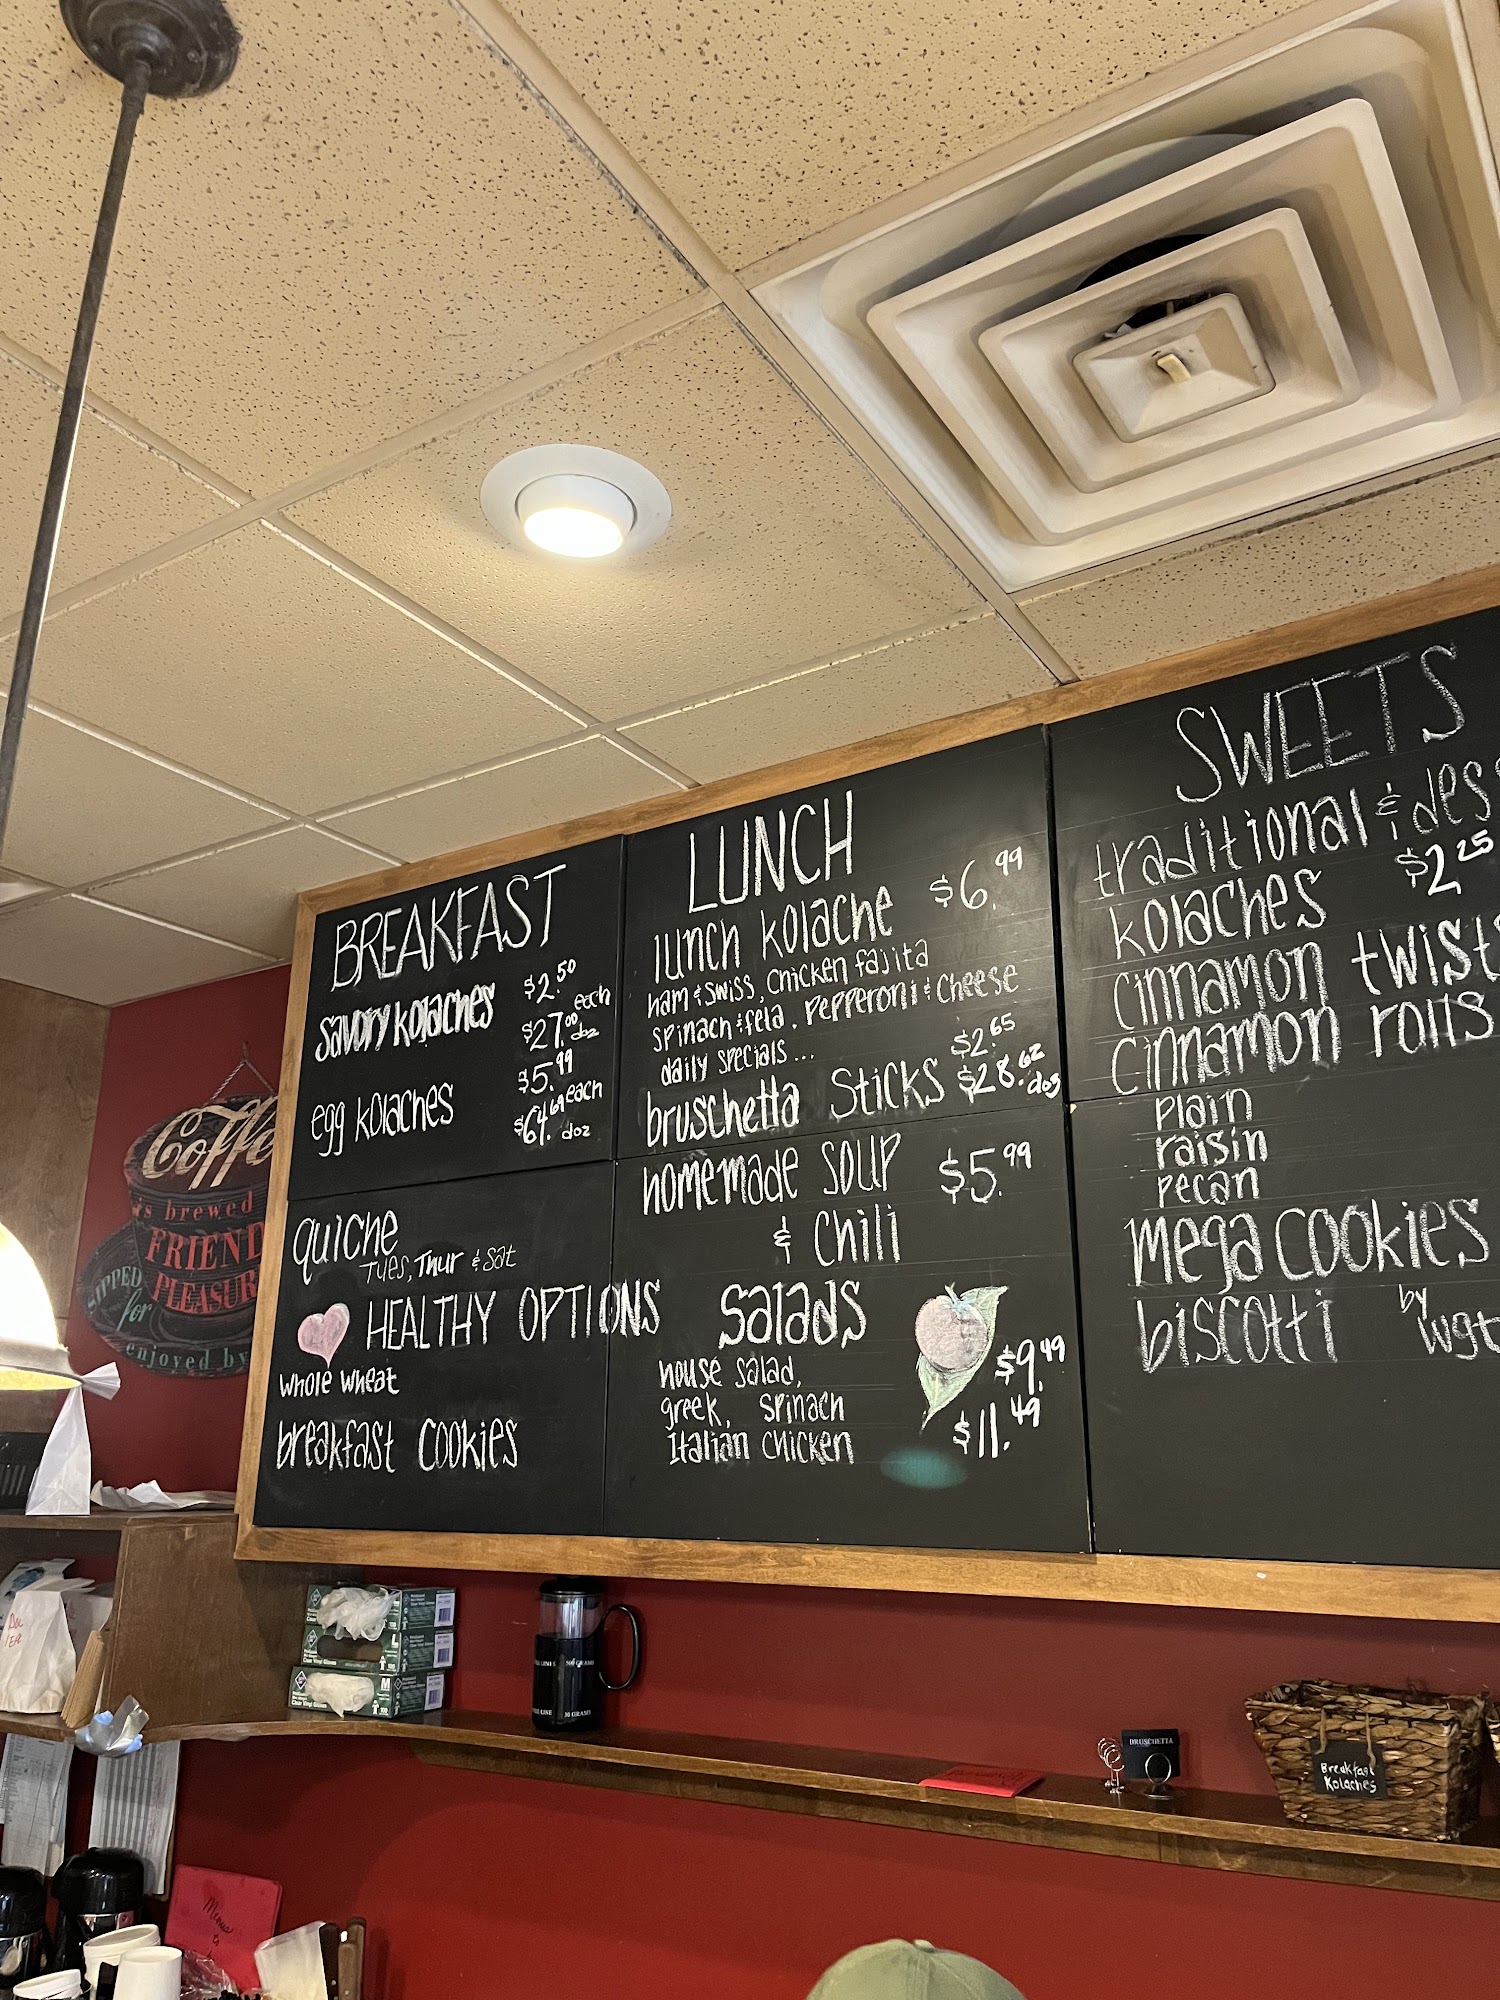 BREAKFAST
savory kolaches $2.50 each
$27.00 doz
egg kolaches $5.99 each
$64.69 doz
quiche
Tues, Thur & Sat
HEALTHY OPTIONS
whole wheat
breakfast cookies
LUNCH
lunch kolache $6.99
ham & swiss, chicken fajita
spinach & feta, pepperoni & cheese
daily specials...
bruschetta sticks $2.65
$28.62 doz
homemade soup $5.99
& chili
salads
house salad, $9.49
greek, spinach
Italian chicken $11.49
SWEETS
traditional &
kolaches $2.25
cinnamon twists
cinnamon rolls
plain
raisin
pecan
mega cookies
biscotti by
Coffe
is brewed
FRIEND
PLEASUR
SIPPED
for
enjoyed by
L
M
30 GRAMS
BRUSCHETTA
Breakfast
Kolaches
Menus
to